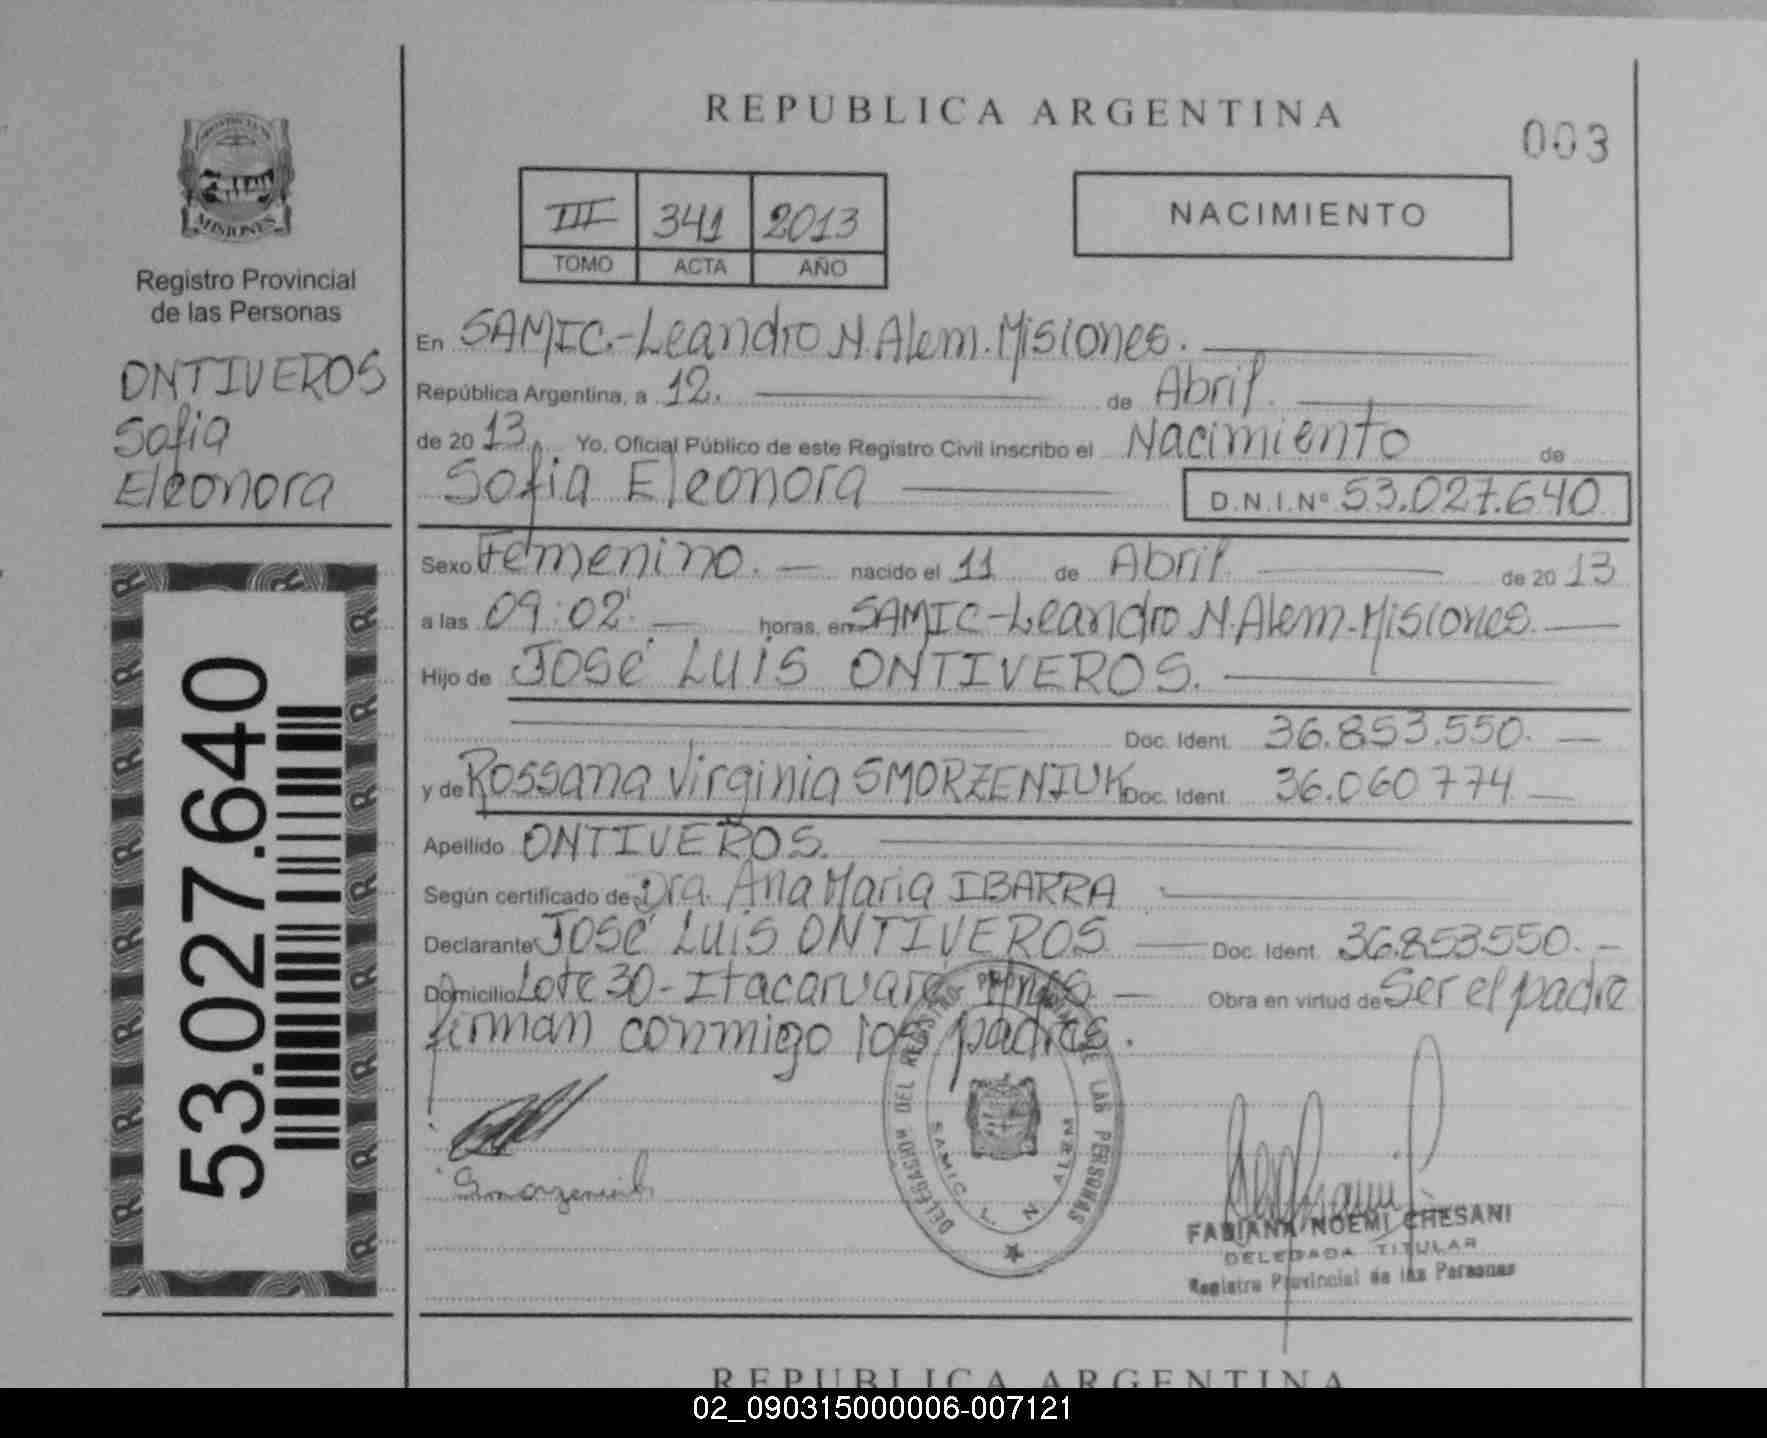 REPUBLICA ARGENTINA
003
PROVINCIA DE
MISIONES
Registro Provincial
de las Personas
ONTIVEROS
Sofia
Eleonora
53.027.640
III 341 2013
TOMO ACTA AÑO
NACIMIENTO
En SAMIC.-Leandro N. Alem. Misiones.
República Argentina, a 12. de Abril.
de 20 13. Yo, Oficial Público de este Registro Civil inscribo el Nacimiento de
Sofia Eleonora D.N.I.Nº 53.027.640
Sexo Femenino. nacido el 11 de Abril de 20 13
a las 09:02. horas, en SAMIC-Leandro N. Alem.-Misiones.
Hijo de JOSÉ LUIS ONTIVEROS.
Doc. Ident. 36.853.550.
y de Rossana Virginia SMORZENIUK Doc. Ident. 36.060774
Apellido ONTIVEROS.
Según certificado de Dra. Ana Maria IBARRA
Declarante JOSÉ LUIS ONTIVEROS Doc. Ident. 36.853.550.
Domicilio Lote 30-Itacaruaré Mnes Obra en virtud de Ser el padre
firman conmigo los padres.
DELEGACION DEL REGISTRO PROVINCIAL DE LAS PERSONAS
SAMIC. L. N. ALEM
FABIANA NOEMI CHESANI
DELEGADA TITULAR
Registro Provincial de las Personas
REPUBLICA ARGENTINA
02_090315000006-007121